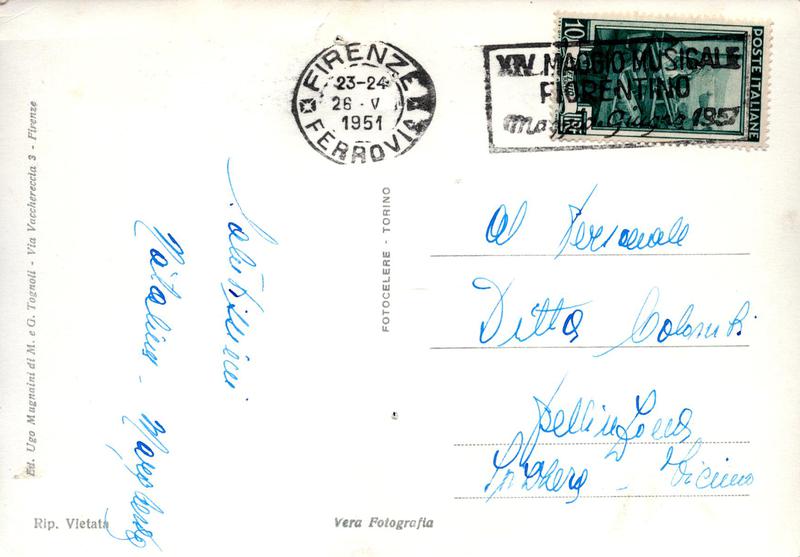 FIRENZE
23-24
26 · V
1951
FERROVIA
XIV MAGGIO MUSICALE
FIORENTINO
Maggio-Giugno 1951
10
POSTE ITALIANE
Al Personale
Ditta Colombi
Bellinzona
Svizzera - Ticino
Saluti
Natalina -
FOTOCELERE - TORINO
Ed. Ugo Magnaini di M. e G. Tognoli - Via Vacchereccia 3 - Firenze
Rip. Vietata
Vera Fotografia